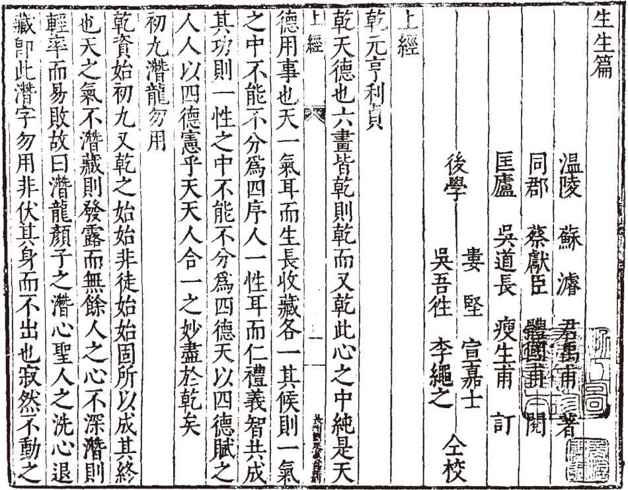 生生篇
温陵 蘇濬 君禹甫 著
同郡 蔡獻臣 體國甫 閱
匡廬 吳道長 瘦生甫 訂
後學 婁堅 宣嘉士 仝校
吳吾徃 李繩之
上經
乾元亨利貞
乾天德也六畫皆乾則乾而又乾此心之中純是天
上經 一
德用事也天一氣耳而生長收藏各一其候則一氣
之中不能不分爲四序人一性耳而仁禮義智共成
其功則一性之中不能不分爲四德天以四德賦之
人人以四德憲乎天天人合一之妙盡於乾矣
初九潛龍勿用
乾資始初九又乾之始始非徒始始固所以成其終
也天之氣不潛藏則發露而無餘人之心不深潛則
輕率而易敗故曰潛龍顏子之潛心聖人之洗心退
藏卽此潛字勿用非伏其身而不出也寂然不動之